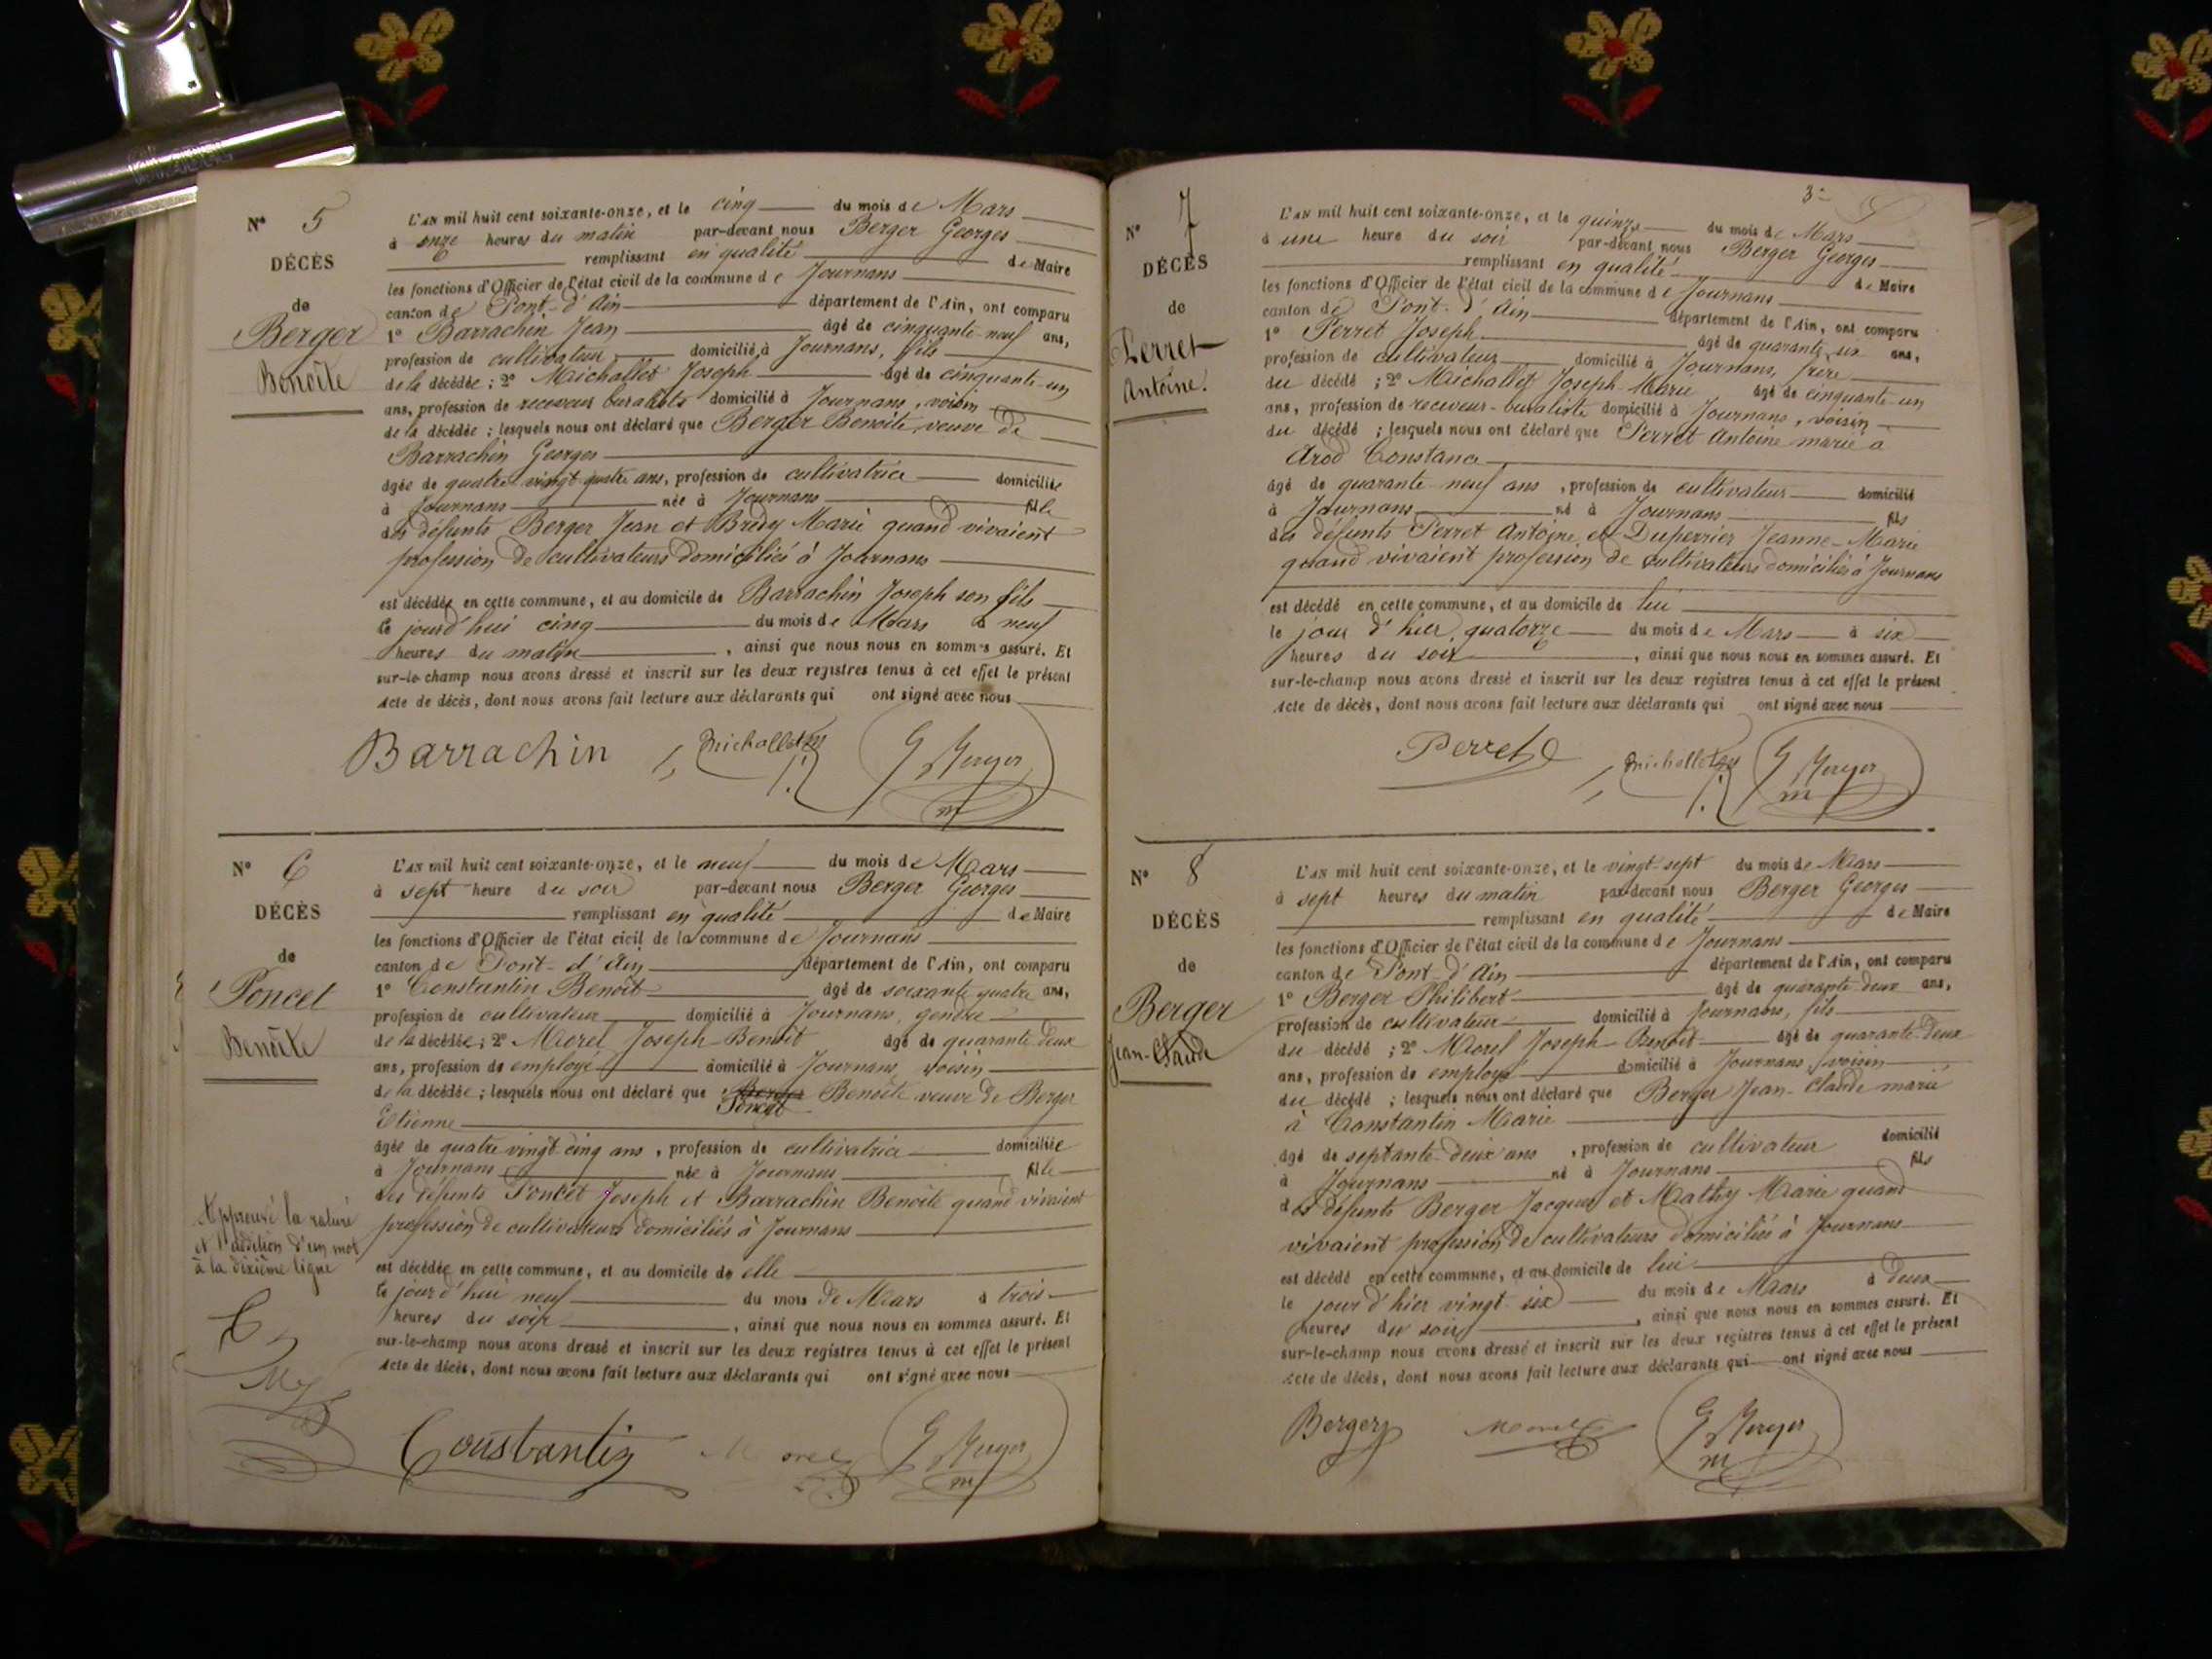 N° 5
DÉCÈS
de
Berger
Benoîte
L'AN mil huit cent soixante-onze, et le cinq du mois de Mars
à onze heures du matin par-devant nous Berger Georges
remplissant en qualité de Maire
les fonctions d'Officier de l'état civil de la commune de Journans
canton de Pont-d'Ain département de l'Ain, ont comparu
1° Barrachin Jean âgé de cinquante neuf ans,
profession de cultivateur domicilié à Journans, fils
de la décédée ; 2° Michallet Joseph âgé de cinquante-un
ans, profession de receveur buraliste domicilié à Journans, voisin
de la décédée ; lesquels nous ont déclaré que Berger Benoîte veuve de
Barrachin Georges
âgée de quatre vingt quatre ans, profession de cultivatrice domiciliée
à Journans née à Journans fille
des défunts Berger Jean et Marie quand vivaient
profession de cultivateurs domiciliés à Journans
est décédée en cette commune, et au domicile de Barrachin Joseph son fils
le jourd'hui cinq du mois de Mars à neuf
heures du matin, ainsi que nous nous en sommes assuré. Et
sur-le-champ nous avons dressé et inscrit sur les deux registres tenus à cet effet le présent
Acte de décès, dont nous avons fait lecture aux déclarants qui ont signé avec nous
Barrachin Michallet G Berger
m
N° 6
DÉCÈS
de
Poncet
Benoîte
L'AN mil huit cent soixante-onze, et le neuf du mois de Mars
à sept heure du soir par-devant nous Berger Georges
remplissant en qualité de Maire
les fonctions d'Officier de l'état civil de la commune de Journans
canton de Pont-d'Ain département de l'Ain, ont comparu
1° Constantin Benoît âgé de soixante quatre ans,
profession de cultivateur domicilié à Journans, gendre
de la décédée ; 2° Morel Joseph-Benoît âgé de quarante deux
ans, profession de employé domicilié à Journans, voisin
de la décédée ; lesquels nous ont déclaré que Berger Benoîte veuve de Berger
Poncet
Etienne
âgée de quatre vingt cinq ans, profession de cultivatrice domiciliée
à Journans née à Journans fille
des défunts Poncet Joseph et Barrachin Benoîte quand vivaient
profession de cultivateurs domiciliés à Journans
est décédée en cette commune, et au domicile de elle
le jourd'hui neuf du mois de Mars à trois
heures du soir, ainsi que nous nous en sommes assuré. Et
sur-le-champ nous avons dressé et inscrit sur les deux registres tenus à cet effet le présent
Acte de décès, dont nous avons fait lecture aux déclarants qui ont signé avec nous
Approuvé la rature
et l'addition d'un mot
à la dixième ligne
Constantin Morel G Berger
m
3
N° 7
DÉCÈS
de
Perret
Antoine
L'AN mil huit cent soixante-onze, et le quinze du mois de Mars
à une heure du soir par-devant nous Berger Georges
remplissant en qualité de Maire
les fonctions d'Officier de l'état civil de la commune de Journans
canton de Pont-d'Ain département de l'Ain, ont comparu
1° Perret Joseph âgé de quarante six ans,
profession de cultivateur domicilié à Journans, frère
du décédé ; 2° Michallet Joseph-Marie âgé de cinquante-un
ans, profession de receveur-buraliste domicilié à Journans, voisin
du décédé ; lesquels nous ont déclaré que Perret Antoine marié à
Arod Constance
âgé de quarante neuf ans, profession de cultivateur domicilié
à Journans né à Journans fils
des défunts Perret Antoine et Duperrier Jeanne-Marie
quand vivaient profession de cultivateurs domiciliés à Journans
est décédé en cette commune, et au domicile de lui
le jour d'hier quatorze du mois de Mars à six
heures du soir, ainsi que nous nous en sommes assuré. Et
sur-le-champ nous avons dressé et inscrit sur les deux registres tenus à cet effet le présent
Acte de décès, dont nous avons fait lecture aux déclarants qui ont signé avec nous
Perret Michallet G Berger
m
N° 8
DÉCÈS
de
Berger
Jean-Claude
L'AN mil huit cent soixante-onze, et le vingt-sept du mois de Mars
à sept heures du matin par-devant nous Berger Georges
remplissant en qualité de Maire
les fonctions d'Officier de l'état civil de la commune de Journans
canton de Pont-d'Ain département de l'Ain, ont comparu
1° Berger Philibert âgé de quarante-deux ans,
profession de cultivateur domicilié à Journans, fils
du décédé ; 2° Morel Joseph-Benoît âgé de quarante-deux
ans, profession de employé domicilié à Journans, voisin
du décédé ; lesquels nous ont déclaré que Berger Jean-Claude marié
à Constantin Marie
âgé de septante-deux ans, profession de cultivateur domicilié
à Journans né à Journans fils
des défunts Berger Jacques et Mathy Marie quand
vivaient profession de cultivateurs domiciliés à Journans
est décédé en cette commune, et au domicile de lui
le jour d'hier vingt-six du mois de Mars à deux
heures du soir, ainsi que nous nous en sommes assuré. Et
sur-le-champ nous avons dressé et inscrit sur les deux registres tenus à cet effet le présent
Acte de décès, dont nous avons fait lecture aux déclarants qui ont signé avec nous
Berger Morel G Berger
m